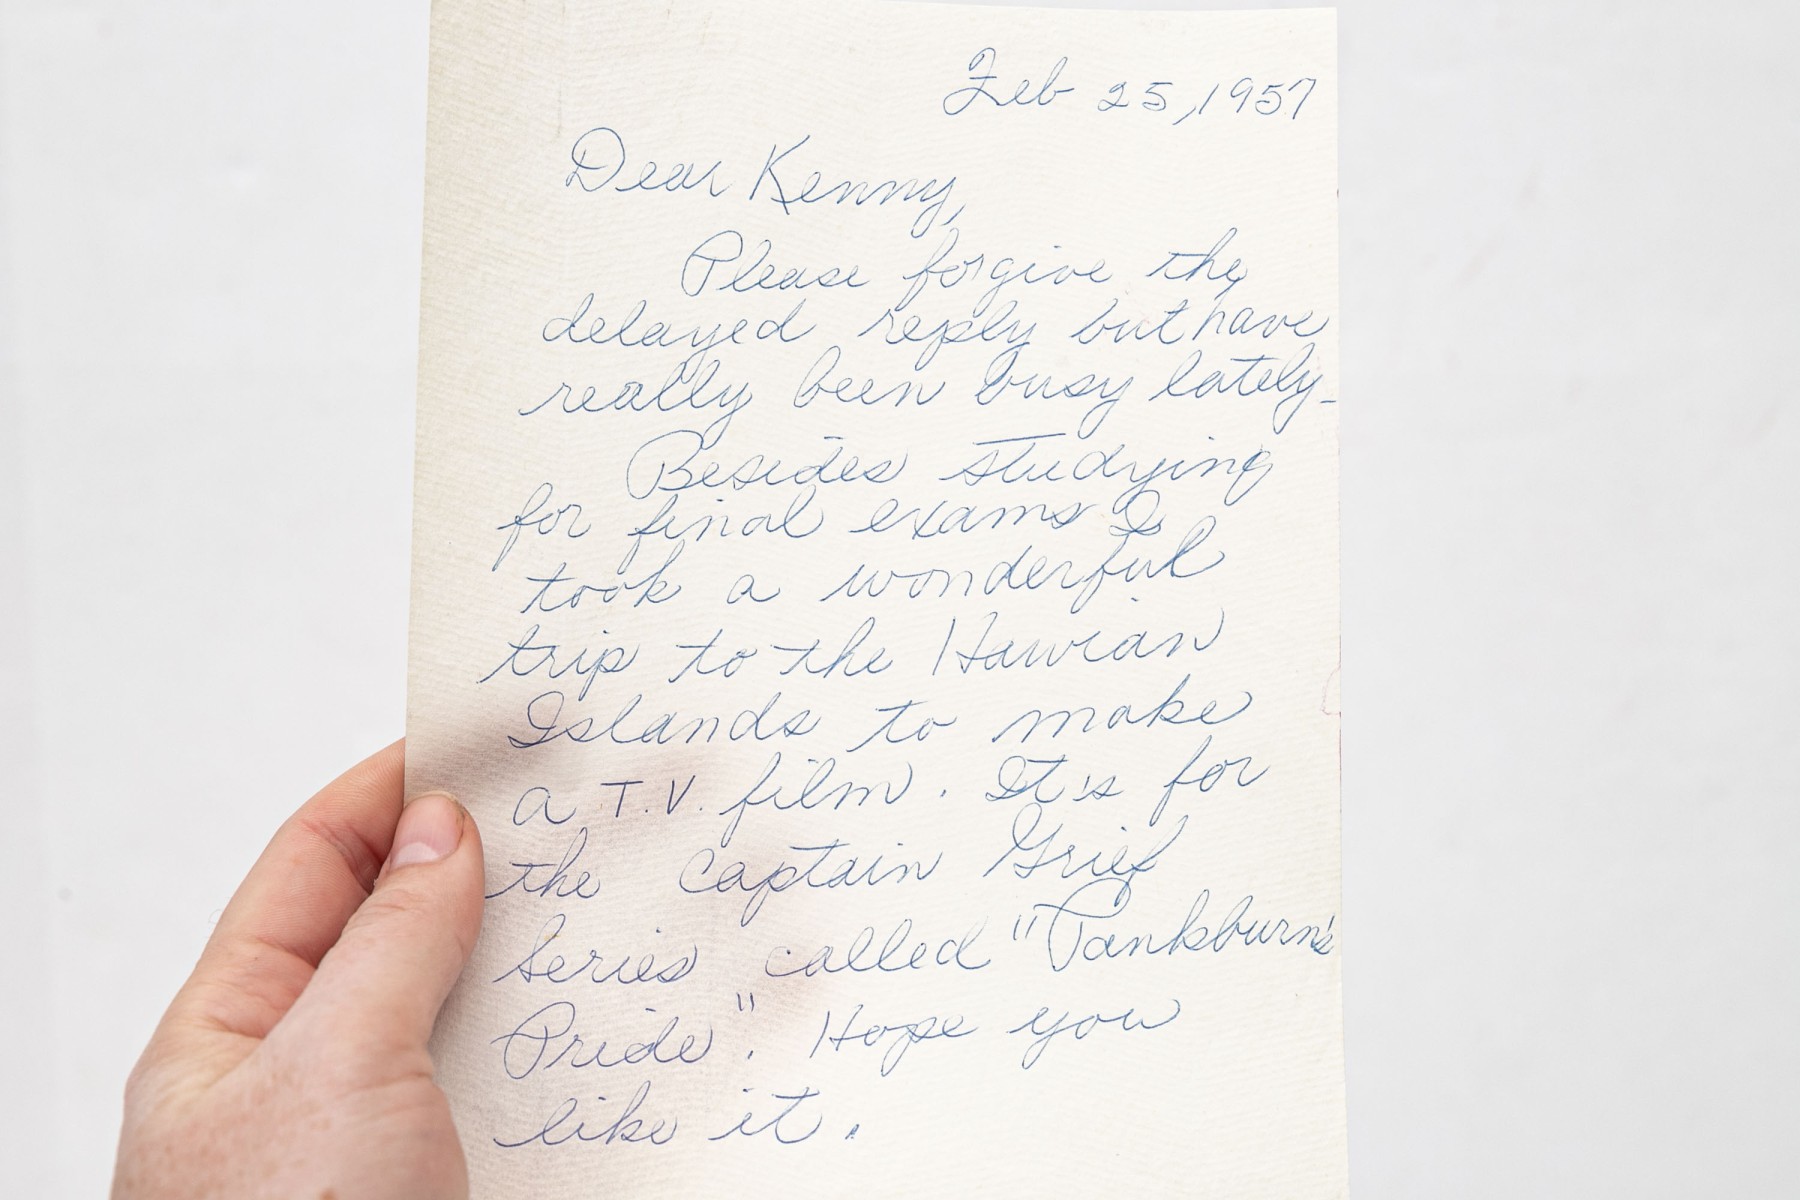 Feb 25, 1957
Dear Kenny,
Please forgive the
delayed reply but have
really been busy lately-
Besides studying
for final exams I
took a wonderful
trip to the Hawian
Islands to make
a T.V. film. It's for
the Captain Grief
Series called "Pankburn's
Pride". Hope you
like it.